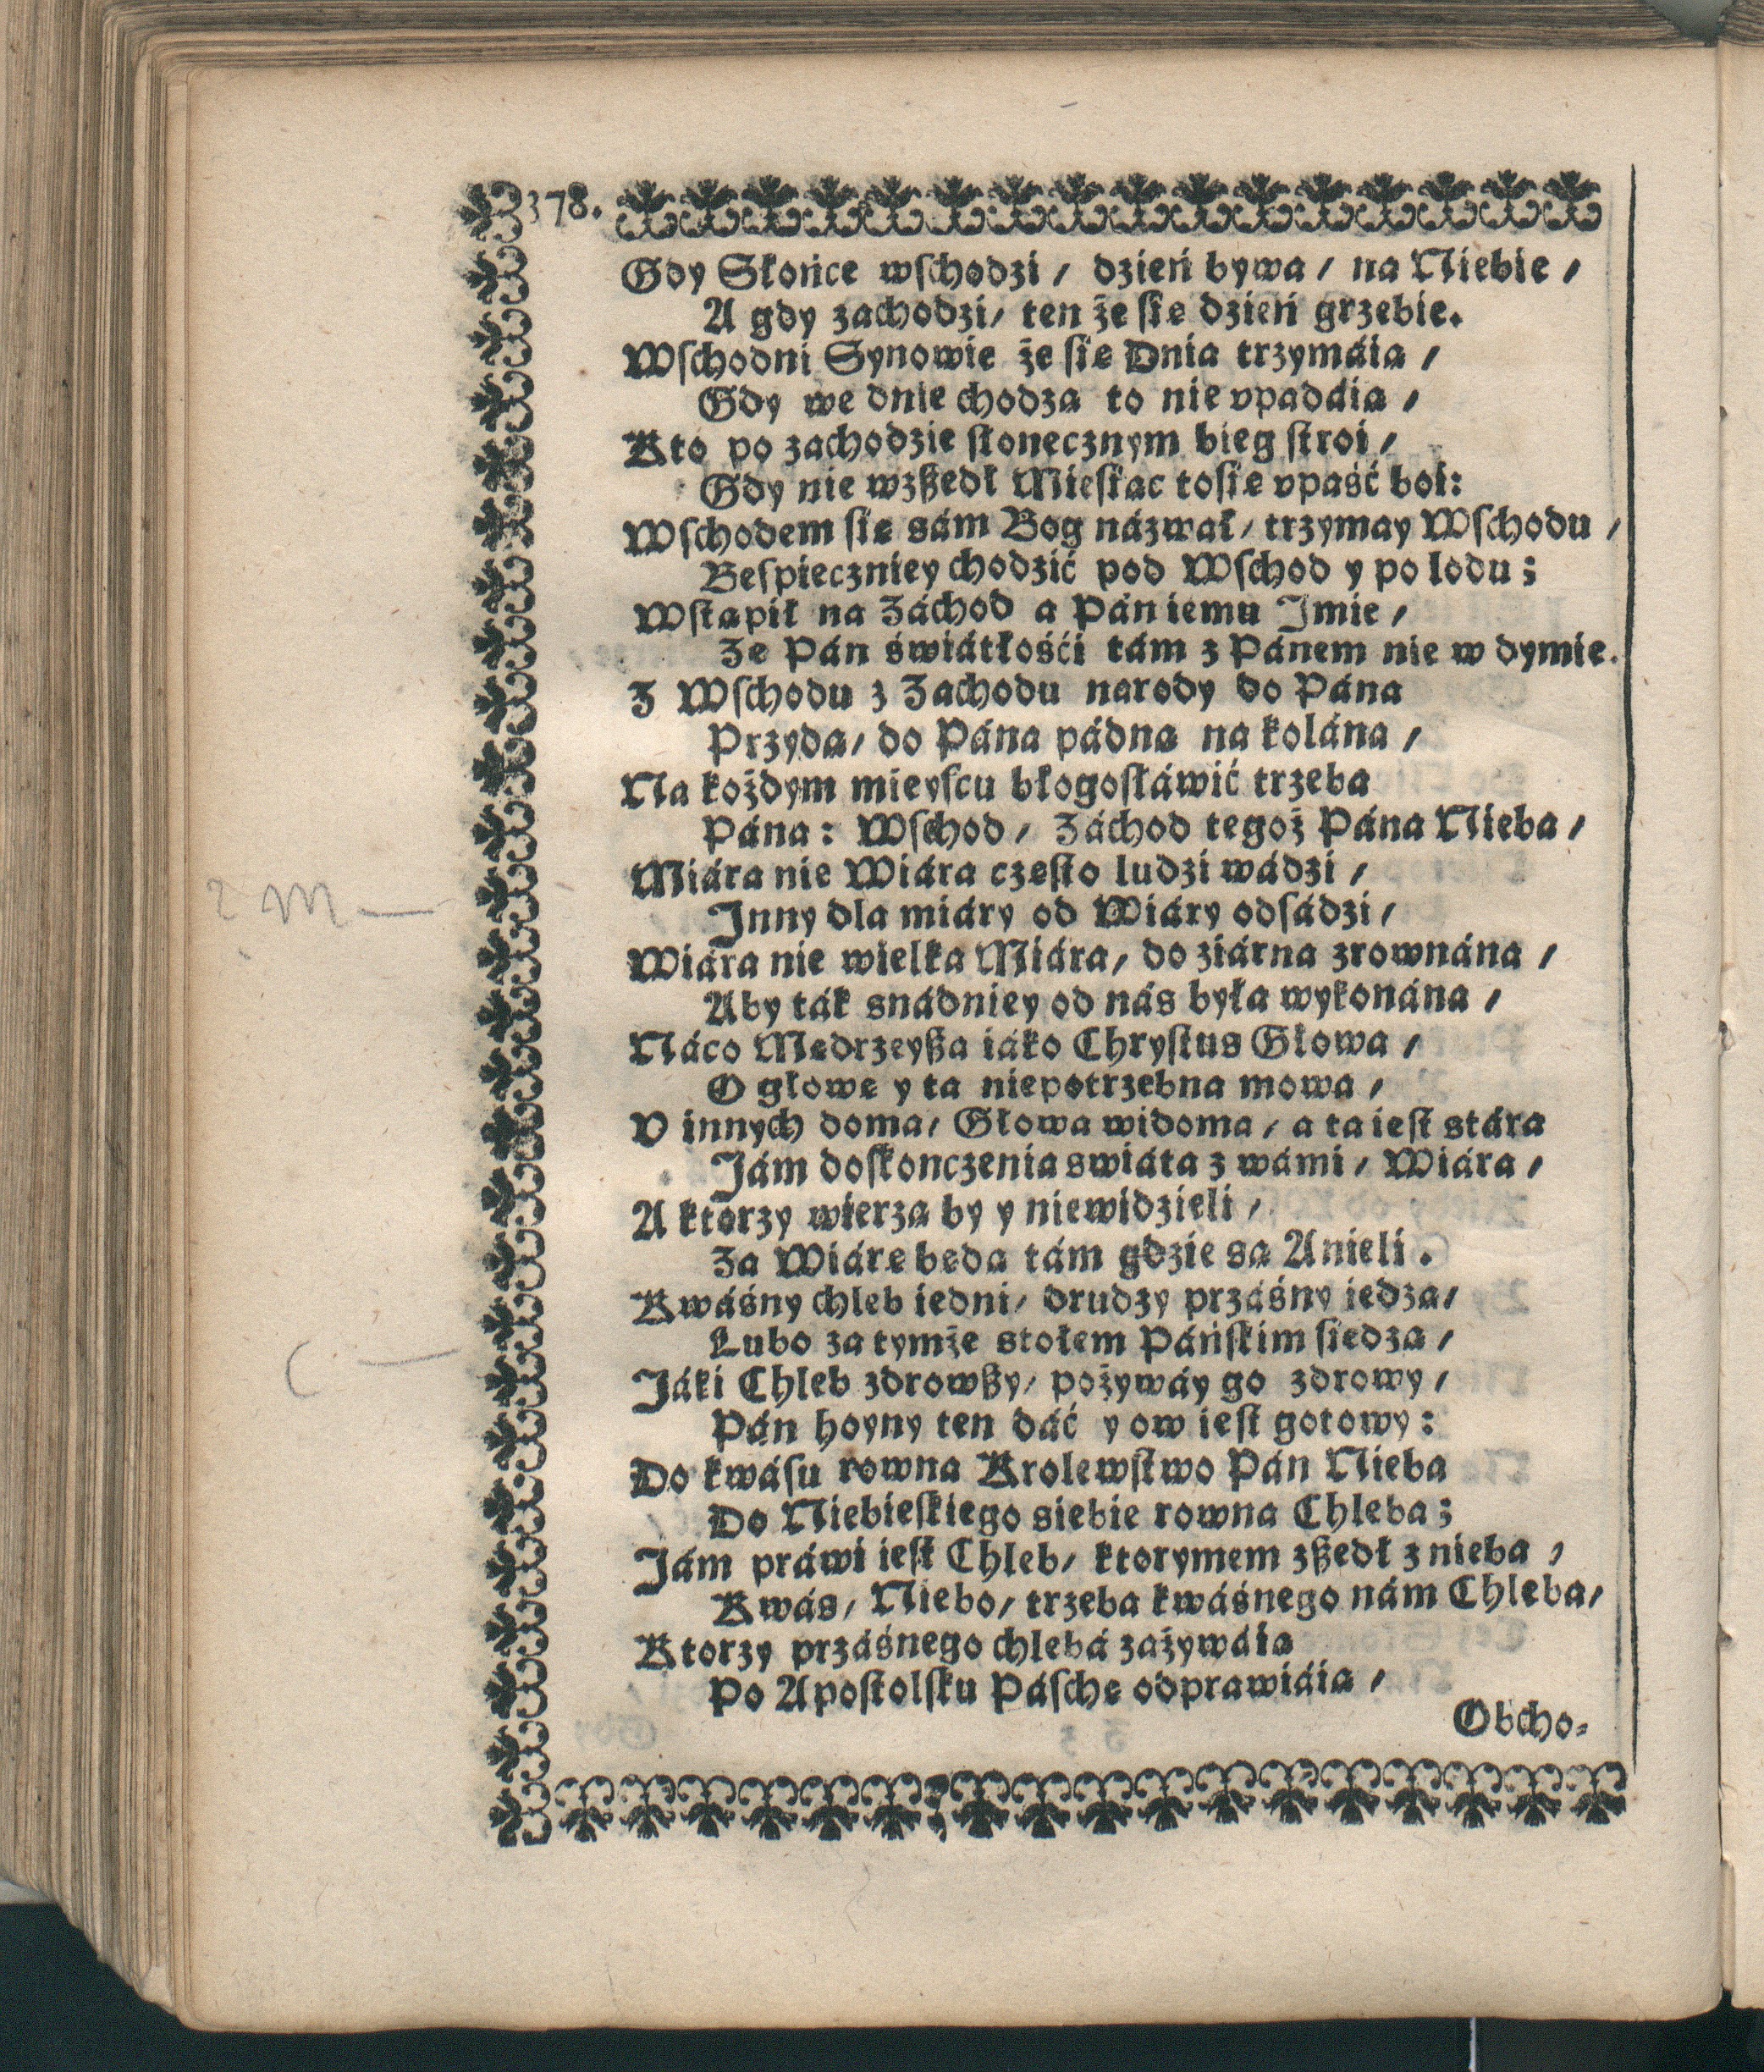 378.
Gdy Słońce wſchodzi / dzień bywa / na Niebie /
A gdy zachodzi / ten że ſię dzień grzebie.
Wſchodni Synowie że ſię Dnia trzymáią /
Gdy we dnie chodzą to nie vpadáią /
Kto po zachodzie ſłonecznym bieg ſtroi /
Gdy nie wzßedł Mieſiąc toſię vpaść boi:
Wſchodem ſię sám Bog názwał / trzymay Wſchodu /
Beſpieczniey chodzić pod Wſchod y po lodu ;
Wſtąpił na Záchod a Pán iemu Jmię /
Ze Pán świátłośći tám z Pánem nie w dymie.
Z Wſchodu z Zachodu narody do Pána
Przydą / do Pána pádną na kolána /
Na kożdym mieyſcu błogoſłáwić trzeba
Pána : Wſchod / Záchod tegoż Pána Nieba /
Miára nie Wiára częſto ludzi wádzi /
Jnny dla miáry od Wiáry odſádzi /
Wiára nie wielka Miára / do ziárna zrownána /
Aby ták snádniey od nás była wykonána /
Náco Mędrzeyßa iáko Chryſtus Głowa /
O głowę y ta niepotrzebna mowa /
V innych doma / Głowa widoma / a ta ieſt stára
Jám doſkonczenia swiáta z wámi / Wiára /
A ktorzy wierzą by y niewidzieli /
Za Wiárę będą tám gdzie są Anieli .
Kwáśny chleb iedni / drudzy przáśny iedzą /
Lubo za tymże stołem Páńſkim ſiedzą /
Jáki Chleb zdrowßy / pożywáy go zdrowy /
Pán hoyny ten dáć y ow ieſt gotowy :
Do kwáſu rowna Krolewſtwo Pán Nieba
Do Niebieſkiego siebie rowna Chleba ;
Jám práwi ieſt Chleb / ktorymem zßedł z nieba /
Kwás / Niebo / trzeba kwáśnego nám Chleba /
Ktorzy przáśnego chlebá zażywáią
Po Apoſtolſku Páſchę odprawiáią /
Obcho-
2 M —
C —